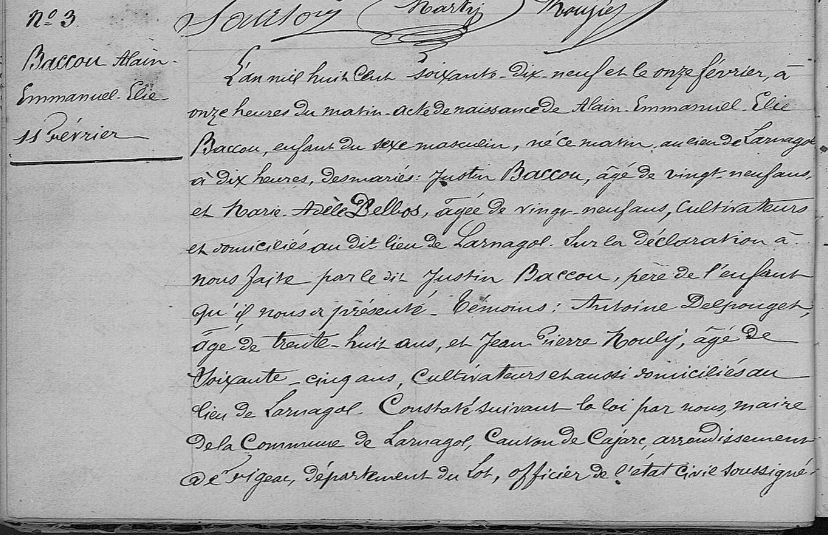 Marty Rougié
N° 3
Baccou Alain-
Emmanuel-Elie
11 Février
L'an mil huit cent soixante-dix-neuf et le onze février, à
onze heures du matin. acte de naissance de Alain-Emmanuel-Elie
Baccou, enfant du sexe masculin, né ce matin, au lieu de Larnagol
à dix heures, des mariés: Justin Baccou, âgé de vingt-neuf ans,
et Marie-Adèle Bellos, âgée de vingt-neuf ans, Cultivateurs
et domiciliés au dit lieu de Larnagol. Sur la déclaration à
nous faite par le dit Justin Baccou, père de l'enfant
qu'il nous a présenté - Témoins: Antoine Delpouget,
âgé de trente-huit ans, et Jean Pierre Mouly, âgé de
Soixante-cinq ans, Cultivateurs et aussi domiciliés au
lieu de Larnagol. Constaté suivant la loi par nous, maire
de la Commune de Larnagol, Canton de Cajarc, arrondissement
de Figeac, département du Lot, officier de l'état civil soussigné